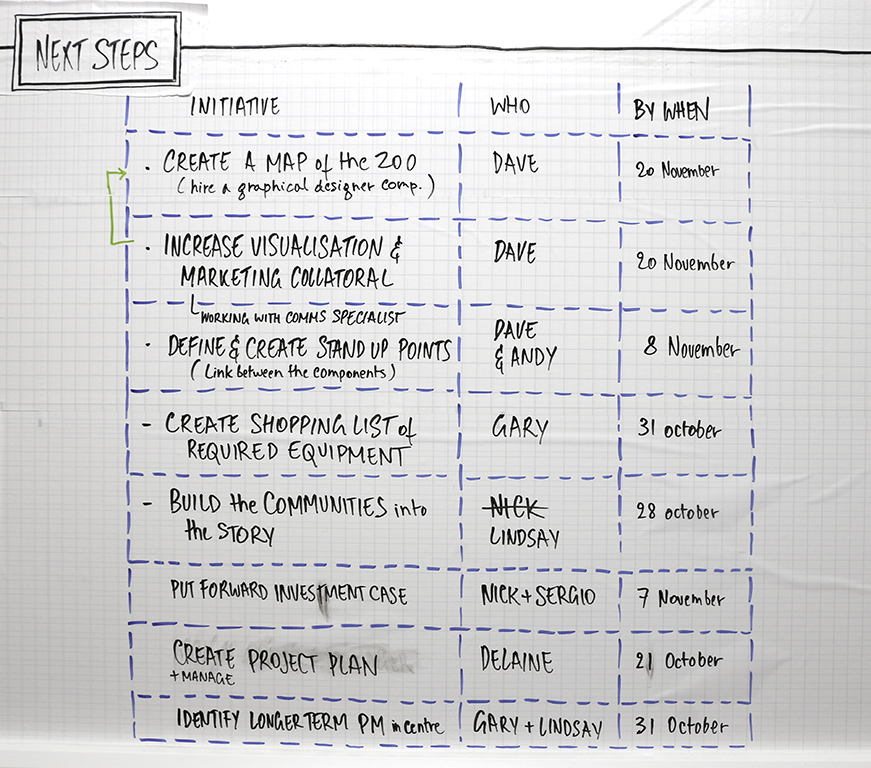 NEXT STEPS
INITIATIVE WHO BY WHEN
· CREATE A MAP of the ZOO DAVE 20 November
(hire a graphical designer comp.)
· INCREASE VISUALISATION & DAVE 20 November
MARKETING COLLATORAL
WORKING WITH COMMS SPECIALIST
· DEFINE & CREATE STAND UP POINTS DAVE & ANDY 8 November
(Link between the components)
- CREATE SHOPPING LIST of GARY 31 october
REQUIRED EQUIPMENT
- BUILD the COMMUNITIES into NICK 28 october
the STORY LINDSAY
PUT FORWARD INVESTMENT CASE NICK + SERGIO 7 November
CREATE PROJECT PLAN DELAINE 21 October
+ MANAGE
IDENTIFY LONGER TERM PM in centre GARY + LINDSAY 31 October